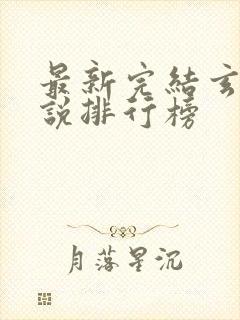 最新完結玄
說排行榜
月落星沉